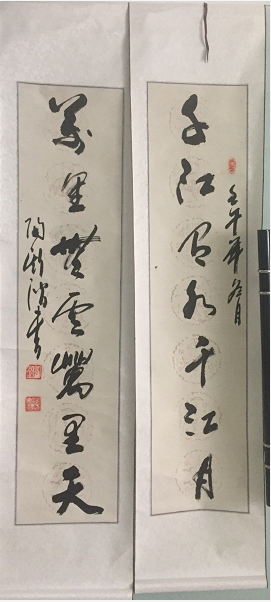 千江有水千江月
壬午年冬月
萬里無雲萬里天
陶 書